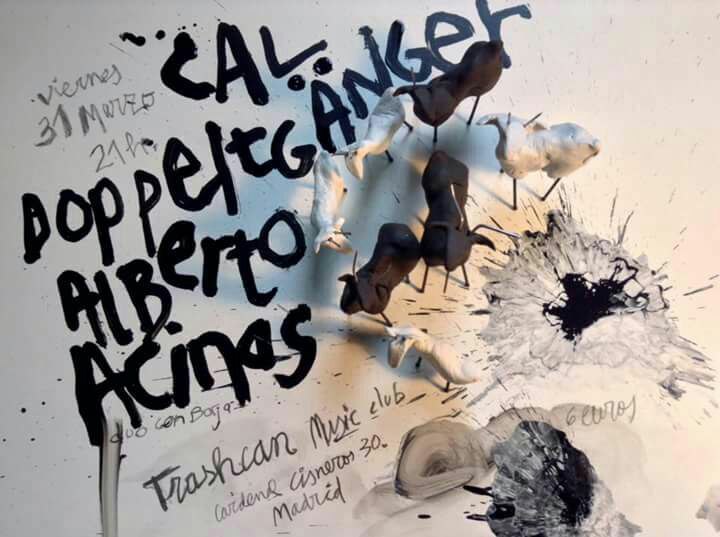 viernes
31 Marzo
21h.
CAL
DOPPeltGÄNGer
ALBerto
Acinas
duo con Borja
Trashcan Music club
Cardenal Cisneros 30.
Madrid
6 euros